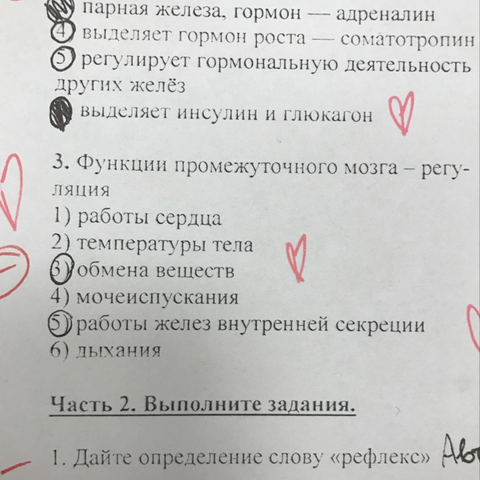 парная железа, гормон — адреналин
4) выделяет гормон роста — соматотропин
5) регулирует гормональную деятельность
других желёз
выделяет инсулин и глюкагон
3. Функции промежуточного мозга – регу-
ляция
1) работы сердца
2) температуры тела
3) обмена веществ
4) мочеиспускания
5) работы желез внутренней секреции
6) дыхания
Часть 2. Выполните задания.
1. Дайте определение слову «рефлекс»